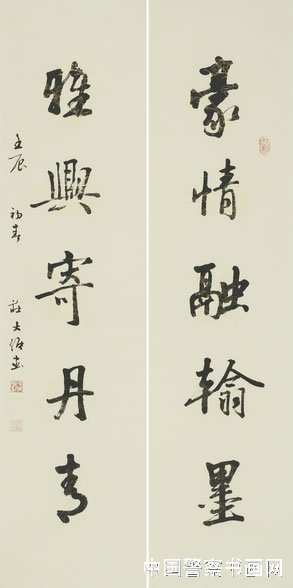 豪情融翰墨
雅興寄丹青
壬辰 初春 莊大书
中国警察书画网